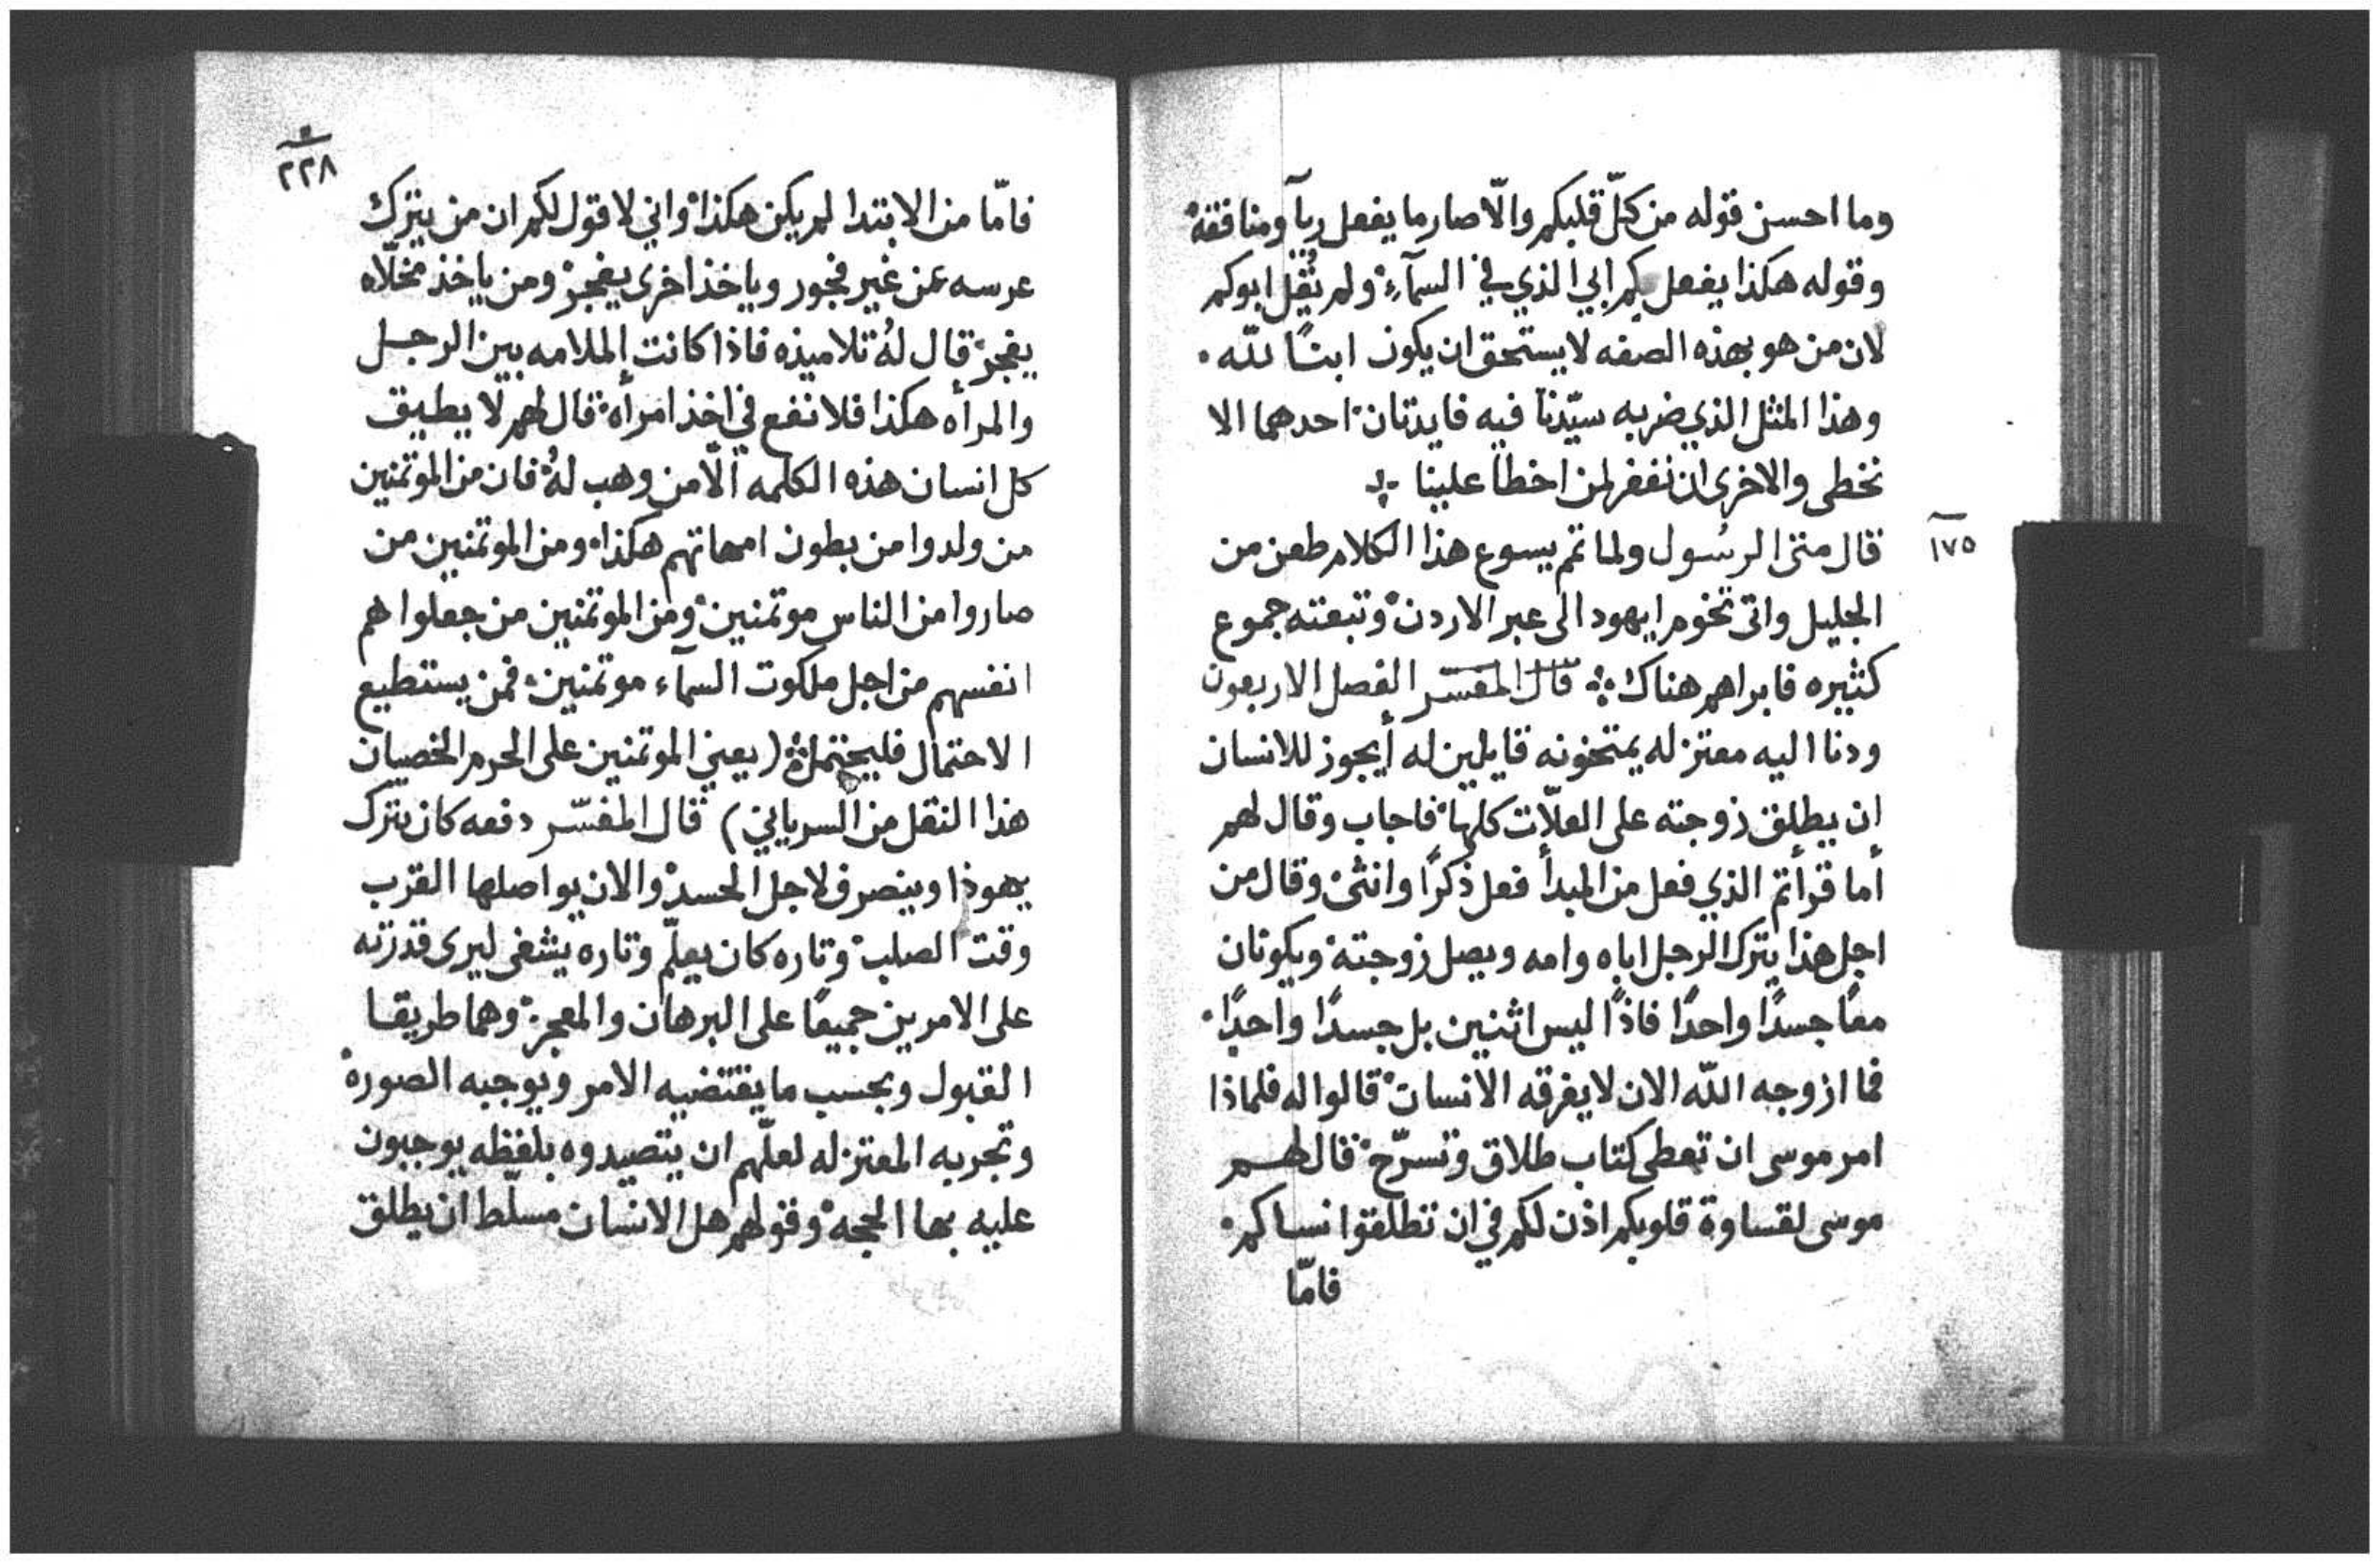 وما احسن قوله من كلّ قلبكم والّا صار ما يفعل ريآ ومنافقه
وقوله هكذا يفعل بكم ابي الذي في السمآء ولم يقل ابوكم
لان من هو بهذه الصفه لا يستحق ان يكون ابنًا للّه
وهذا المثل الذي ضربه سيّدنا فيه فايدتان احدهما الا
نخطى والاخرى ان نغفر لمن اخطا علينا
١٧٥
قال متى الرسُول ولما تم يسوع هذا الكلام طعن من
الجليل واتى تخوم ايهودا الى عبر الاردن وتبعته جموع
كثيره فابراهم هناك قال المفسّر الفصل الاربعون
ودنا اليه معتزله يمتحنونه قايلين له أيجوز للانسان
ان يطلق زوجته على العلّات كلها فاجاب وقال لهم
أما قرأتم الذي فعل من المبدأ فعل ذكرًا وانثى وقال من
اجل هذا يترك الرجل اباه وامه ويصل زوجته ويكونان
معًا جسدًا واحدًا فاذًا ليس اثنين بل جسدًا واحدًا
فما ازوجه اللّه الان لا يفرقه الانسان قالوا له فلماذا
امر موسى ان تعطى كتاب طلاق وتسرّح قال لهم
موسى لقساوة قلوبكم اذن لكم في ان تطلقوا نساكم
فامّا
٢٢٨
فامّا من الابتدا لم يكن هكذا واني لاقول لكم ان من يترك
عرسه عن غير فجور وياخذ اخرى يفجر ومن ياخذ مخلّاه
يفجر قال لهُ تلاميذه فاذا كانت الملامه بين الرجل
والمرأه هكذا فلا نفع في اخذ امرأه قال لهم لا يطيق
كل انسان هذه الكلمه الّا من وهب لهُ فان من الموتمنين
من ولدوا من بطون امهاتهم هكذا ومن الموتمنين من
صاروا من الناس موتمنين ومن الموتمنين من جعلوا هم
انفسهم من اجل ملكوت السمآء موتمنين فمن يستطيع
الاحتمال فليحتمل (يعني الموتمنين على الحرم الخصيان
هذا النقل من السرياني) قال المفسّر دفعه كان يترك
يهوذا وينصرف لاجل الحسد والان يواصلها القرب
وقت الصلب وتاره كان يعلّم وتاره يشفى ليرى قدرته
على الامرين جميعًا على البرهان والمعجز وهما طريقا
القبول وبحسب ما يقتضيه الامر ويوجبه الصوره
وتجربه المعتزله لعلّهم ان يتصيدوه بلفظه يوجبون
عليه بها الحجه وقولهم هل الانسان مسلّط ان يطلق